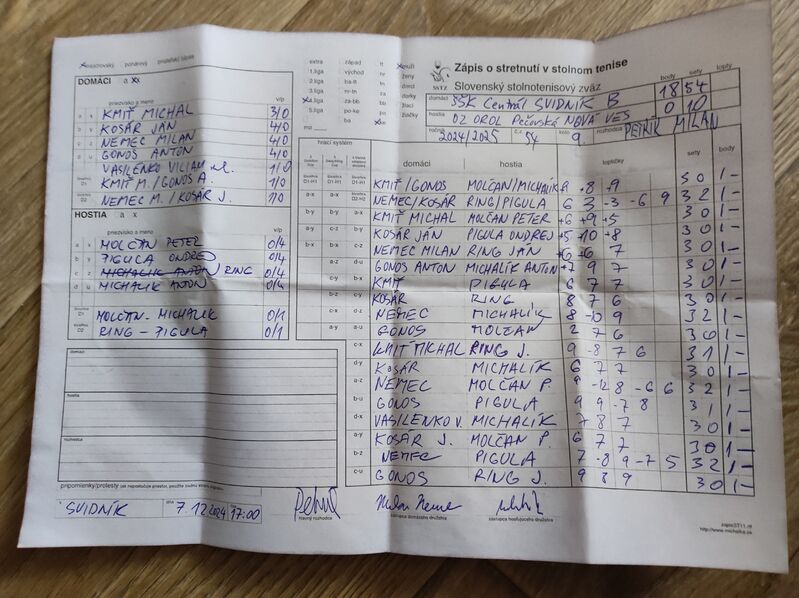 majstrovský pohárový priateľský zápas
DOMÁCI a x
priezvisko a meno v/p
a x KMIŤ MICHAL 3/0
b y KOSÁR JÁN 4/0
c z NEMEC MILAN 4/0
d u GONOS ANTON 4/0
VASILENKO VILIAM 1/0
D1 KMIŤ M./GONOS A. 1/0
D2 NEMEC M./KOSÁR J. 1/0
HOSTIA a x
priezvisko a meno v/p
a x MOLČAN PETER 0/4
b y PIGULA ONDREJ 0/4
c z MICHALIK ANTON RING 0/4
d u MICHALIK ANTON 0/4
D1 MOLČAN - MICHALIK 0/1
D2 RING - PIGULA 0/1
domáci
hostia
rozhodca
pripomienky/protesty
SVIDNÍK 7.12.2024 17:00
extra západ
1.liga východ
2.liga ba-tt
3.liga nr-tn
4.liga za-bb
5.liga po-ke
ba
muži
ženy
dorky
žiaci
žiačky
Zápis o stretnutí v stolnom tenise
SSTZ Slovenský stolnotenisový zväz
body sety lopty
domáci ŠŠK Centrál SVIDNÍK B 18 54
hostia OZ OROL Pečovská NOVÁ VES 0 10
ročník 2024/2025 č.z 54 kolo 9. rozhodca PETRÍK MILAN
hrací systém
domáci hostia loptičky sety body
KMIŤ/GONOS MOLČAN/MICHALIK 8 8 9 3 0 1 -
NEMEC/KOSÁR RING/PIGULA 6 3 -3 -6 9 3 2 1 -
KMIŤ MICHAL MOLČAN PETER 6 9 5 3 0 1 -
KOSÁR JÁN PIGULA ONDREJ 5 10 8 3 0 1 -
NEMEC MILAN RING JÁN 6 6 7 3 0 1 -
GONOS ANTON MICHALÍK ANTON 7 9 7 3 0 1 -
KMIŤ PIGULA 6 7 7 3 0 1 -
KOSÁR RING 8 7 6 3 0 1 -
NEMEC MICHALÍK 8 -10 9 3 2 1 -
GONOS MOLČAN 2 7 6 3 0 1 -
c-x KMIŤ MICHAL RING J. 9 -8 7 6 3 1 1 -
d-y KOSÁR MICHALÍK 6 7 7 3 0 1 -
a-z NEMEC MOLČAN P. 9 -12 8 -6 6 3 2 1 -
b-u GONOS PIGULA 9 9 -7 8 3 1 1 -
d-x VASILENKO V. MICHALÍK 7 8 7 3 0 1 -
a-y KOSÁR J. MOLČAN P. 6 7 7 3 0 1 -
b-z NEMEC PIGULA 7 -8 9 -7 5 3 2 1 -
c-u GONOS RING J. 9 8 9 3 0 1 -
hlavný rozhodca
zástupca domáceho družstva
zástupca hosťujúceho družstva
http://www.michalka.sk